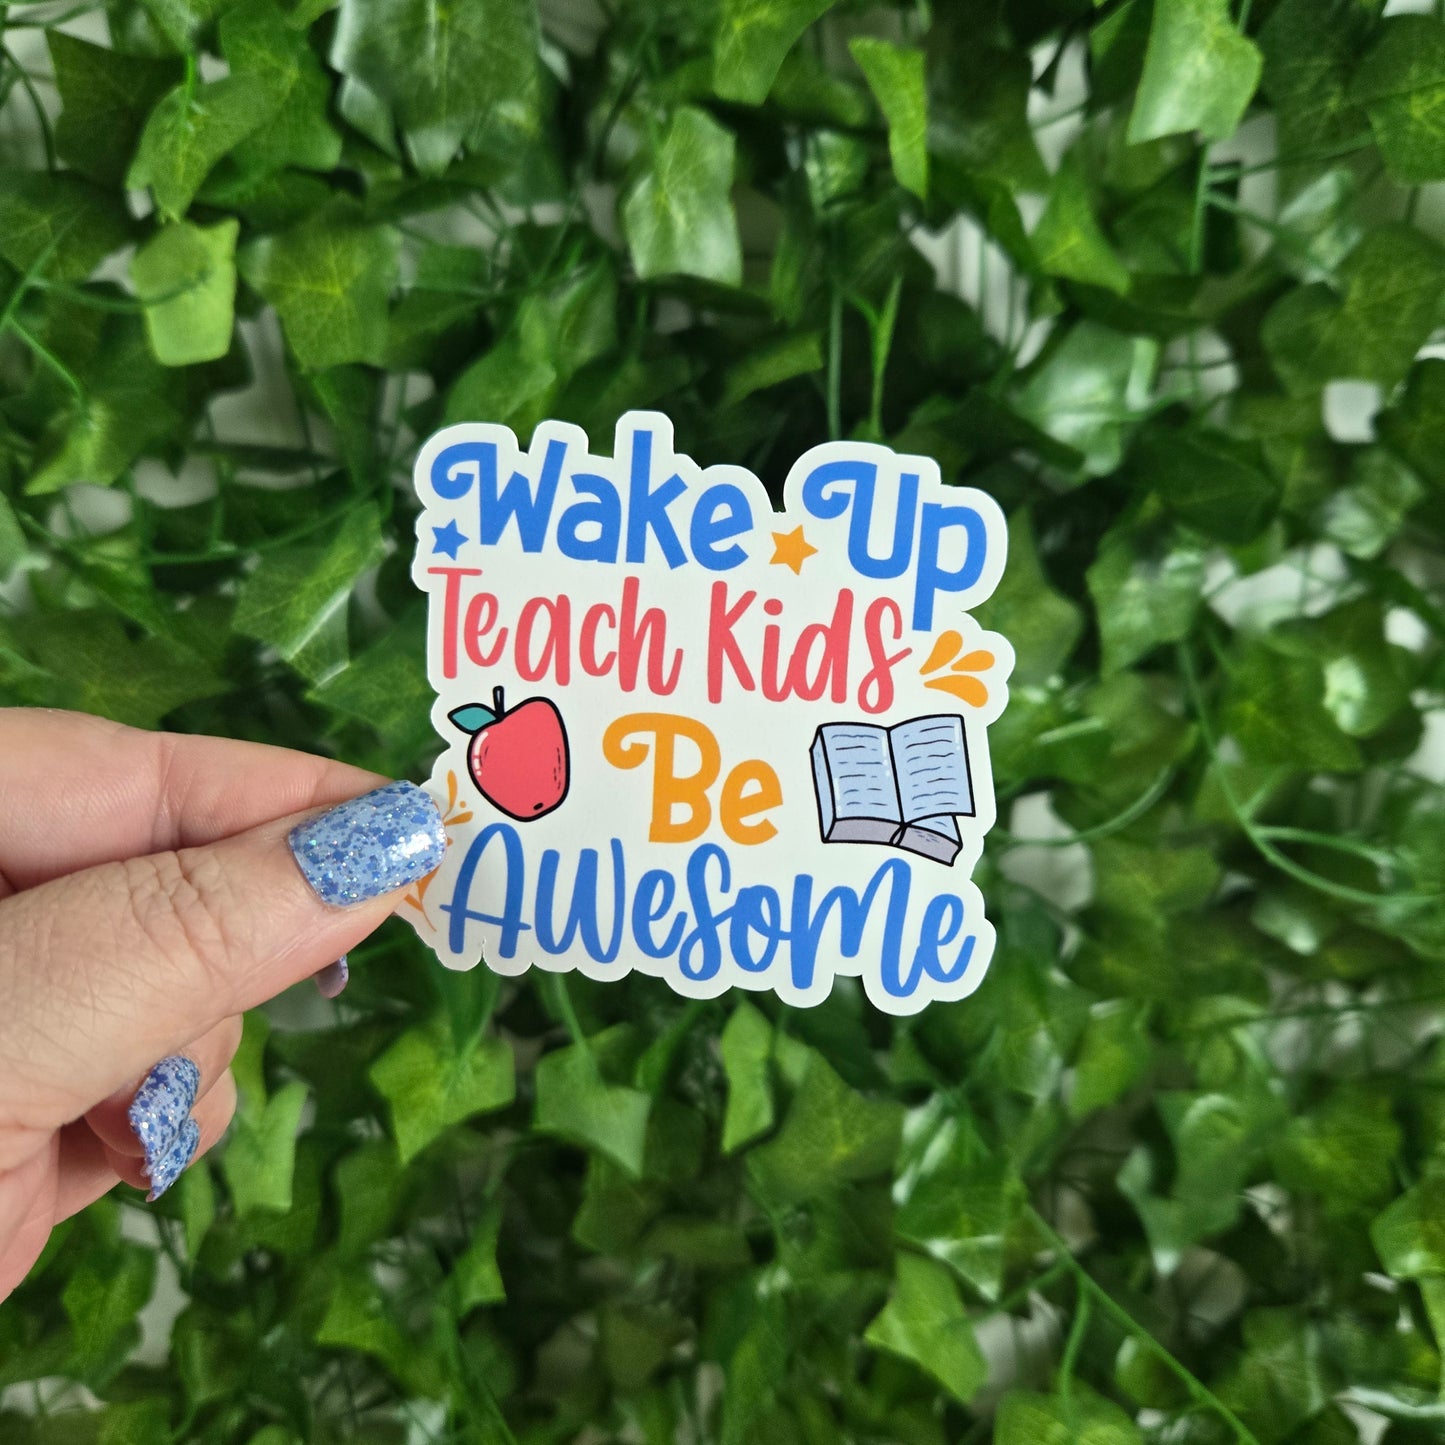 Wake Up
Teach Kids
Be
Awesome